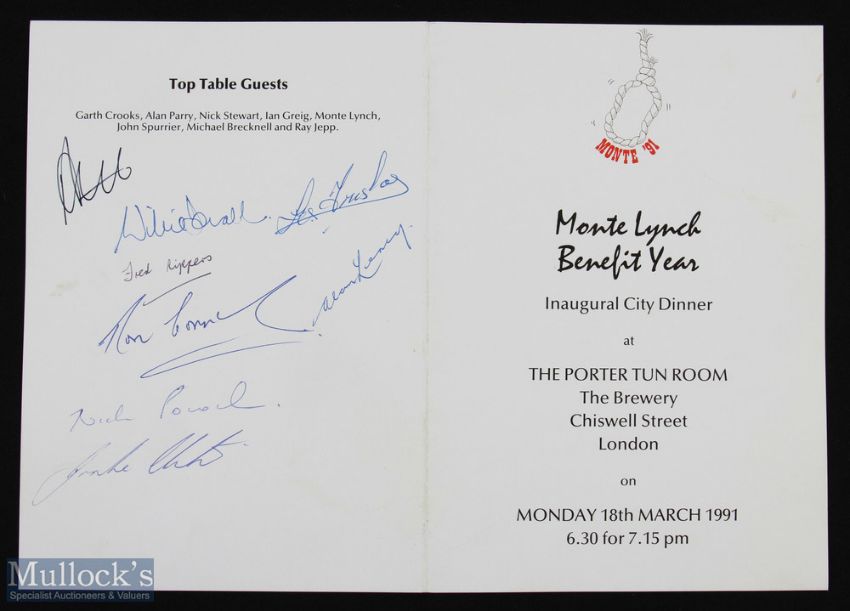 Top Table Guests
Garth Crooks, Alan Parry, Nick Stewart, Ian Greig, Monte Lynch,
John Spurrier, Michael Brecknell and Ray Jepp.
Fred Rippers
MONTE '91
Monte Lynch
Benefit Year
Inaugural City Dinner
at
THE PORTER TUN ROOM
The Brewery
Chiswell Street
London
on
MONDAY 18th MARCH 1991
6.30 for 7.15 pm
Mullock's
Specialist Auctioneers & Valuers